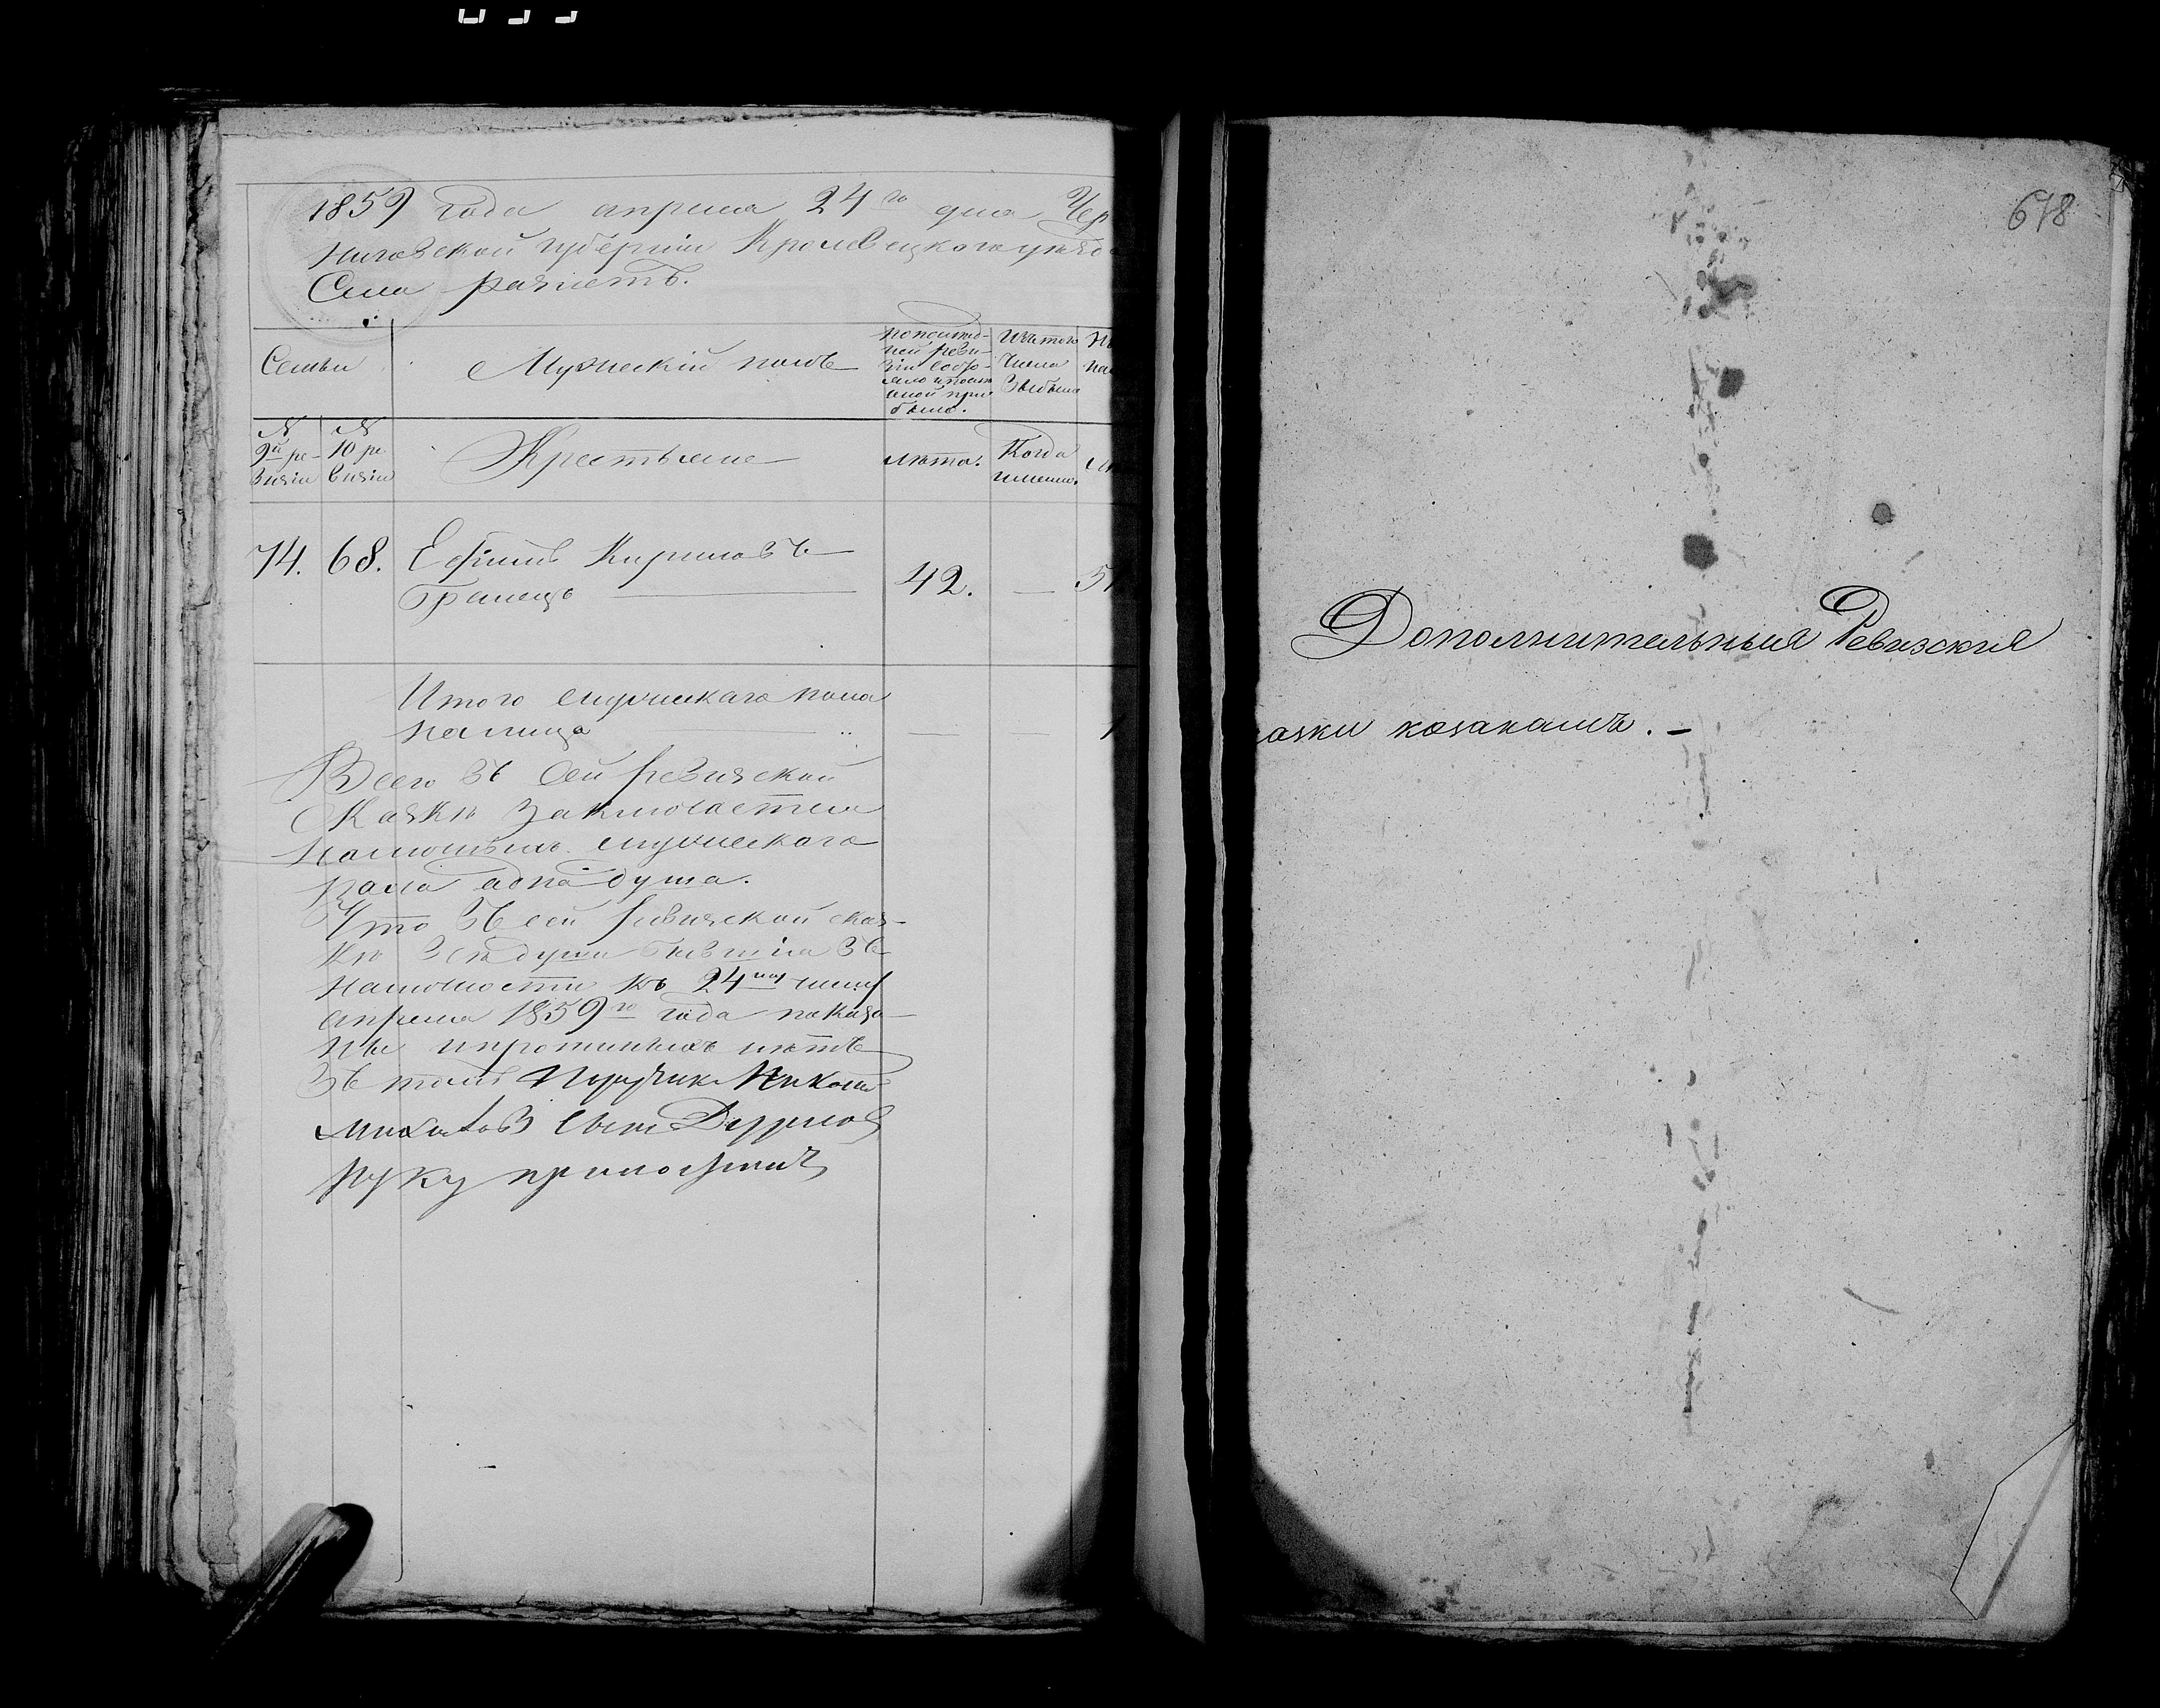 1859 года апреля 24го дня Чер
ниговской губерніи Кролевецкого уезда
Села
Семьи
Мужескій полъ
Изъ того
числа
выбыло
№
9й ре-
визіи
№
10 ре
визіи
Крестьяне
лѣта.
Когда
именно.
74. 68. Ефимъ Кириловъ
42. — 51
Итого мужескаго пола
на лицо
Всего въ сей ревизской
сказкѣ заключается
наличныхъ мужеского
пола адна душа.
Что въ сей ревизской сказ-
кѣ всѣ души бывшія въ
наличности къ 24му числу
апреля 1859го года показа-
ны и прописныхъ нѣтъ
въ томъ
руку приложилъ
678
Дополнительныя Ревизскія
азки козакамъ. —